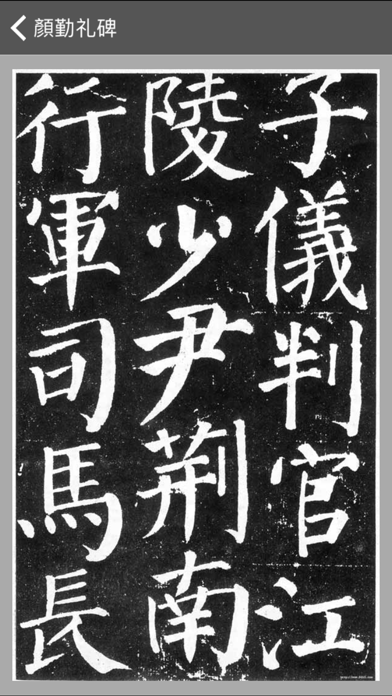 顏勤礼碑
子儀判官江
陵少尹荊南
行軍司馬長